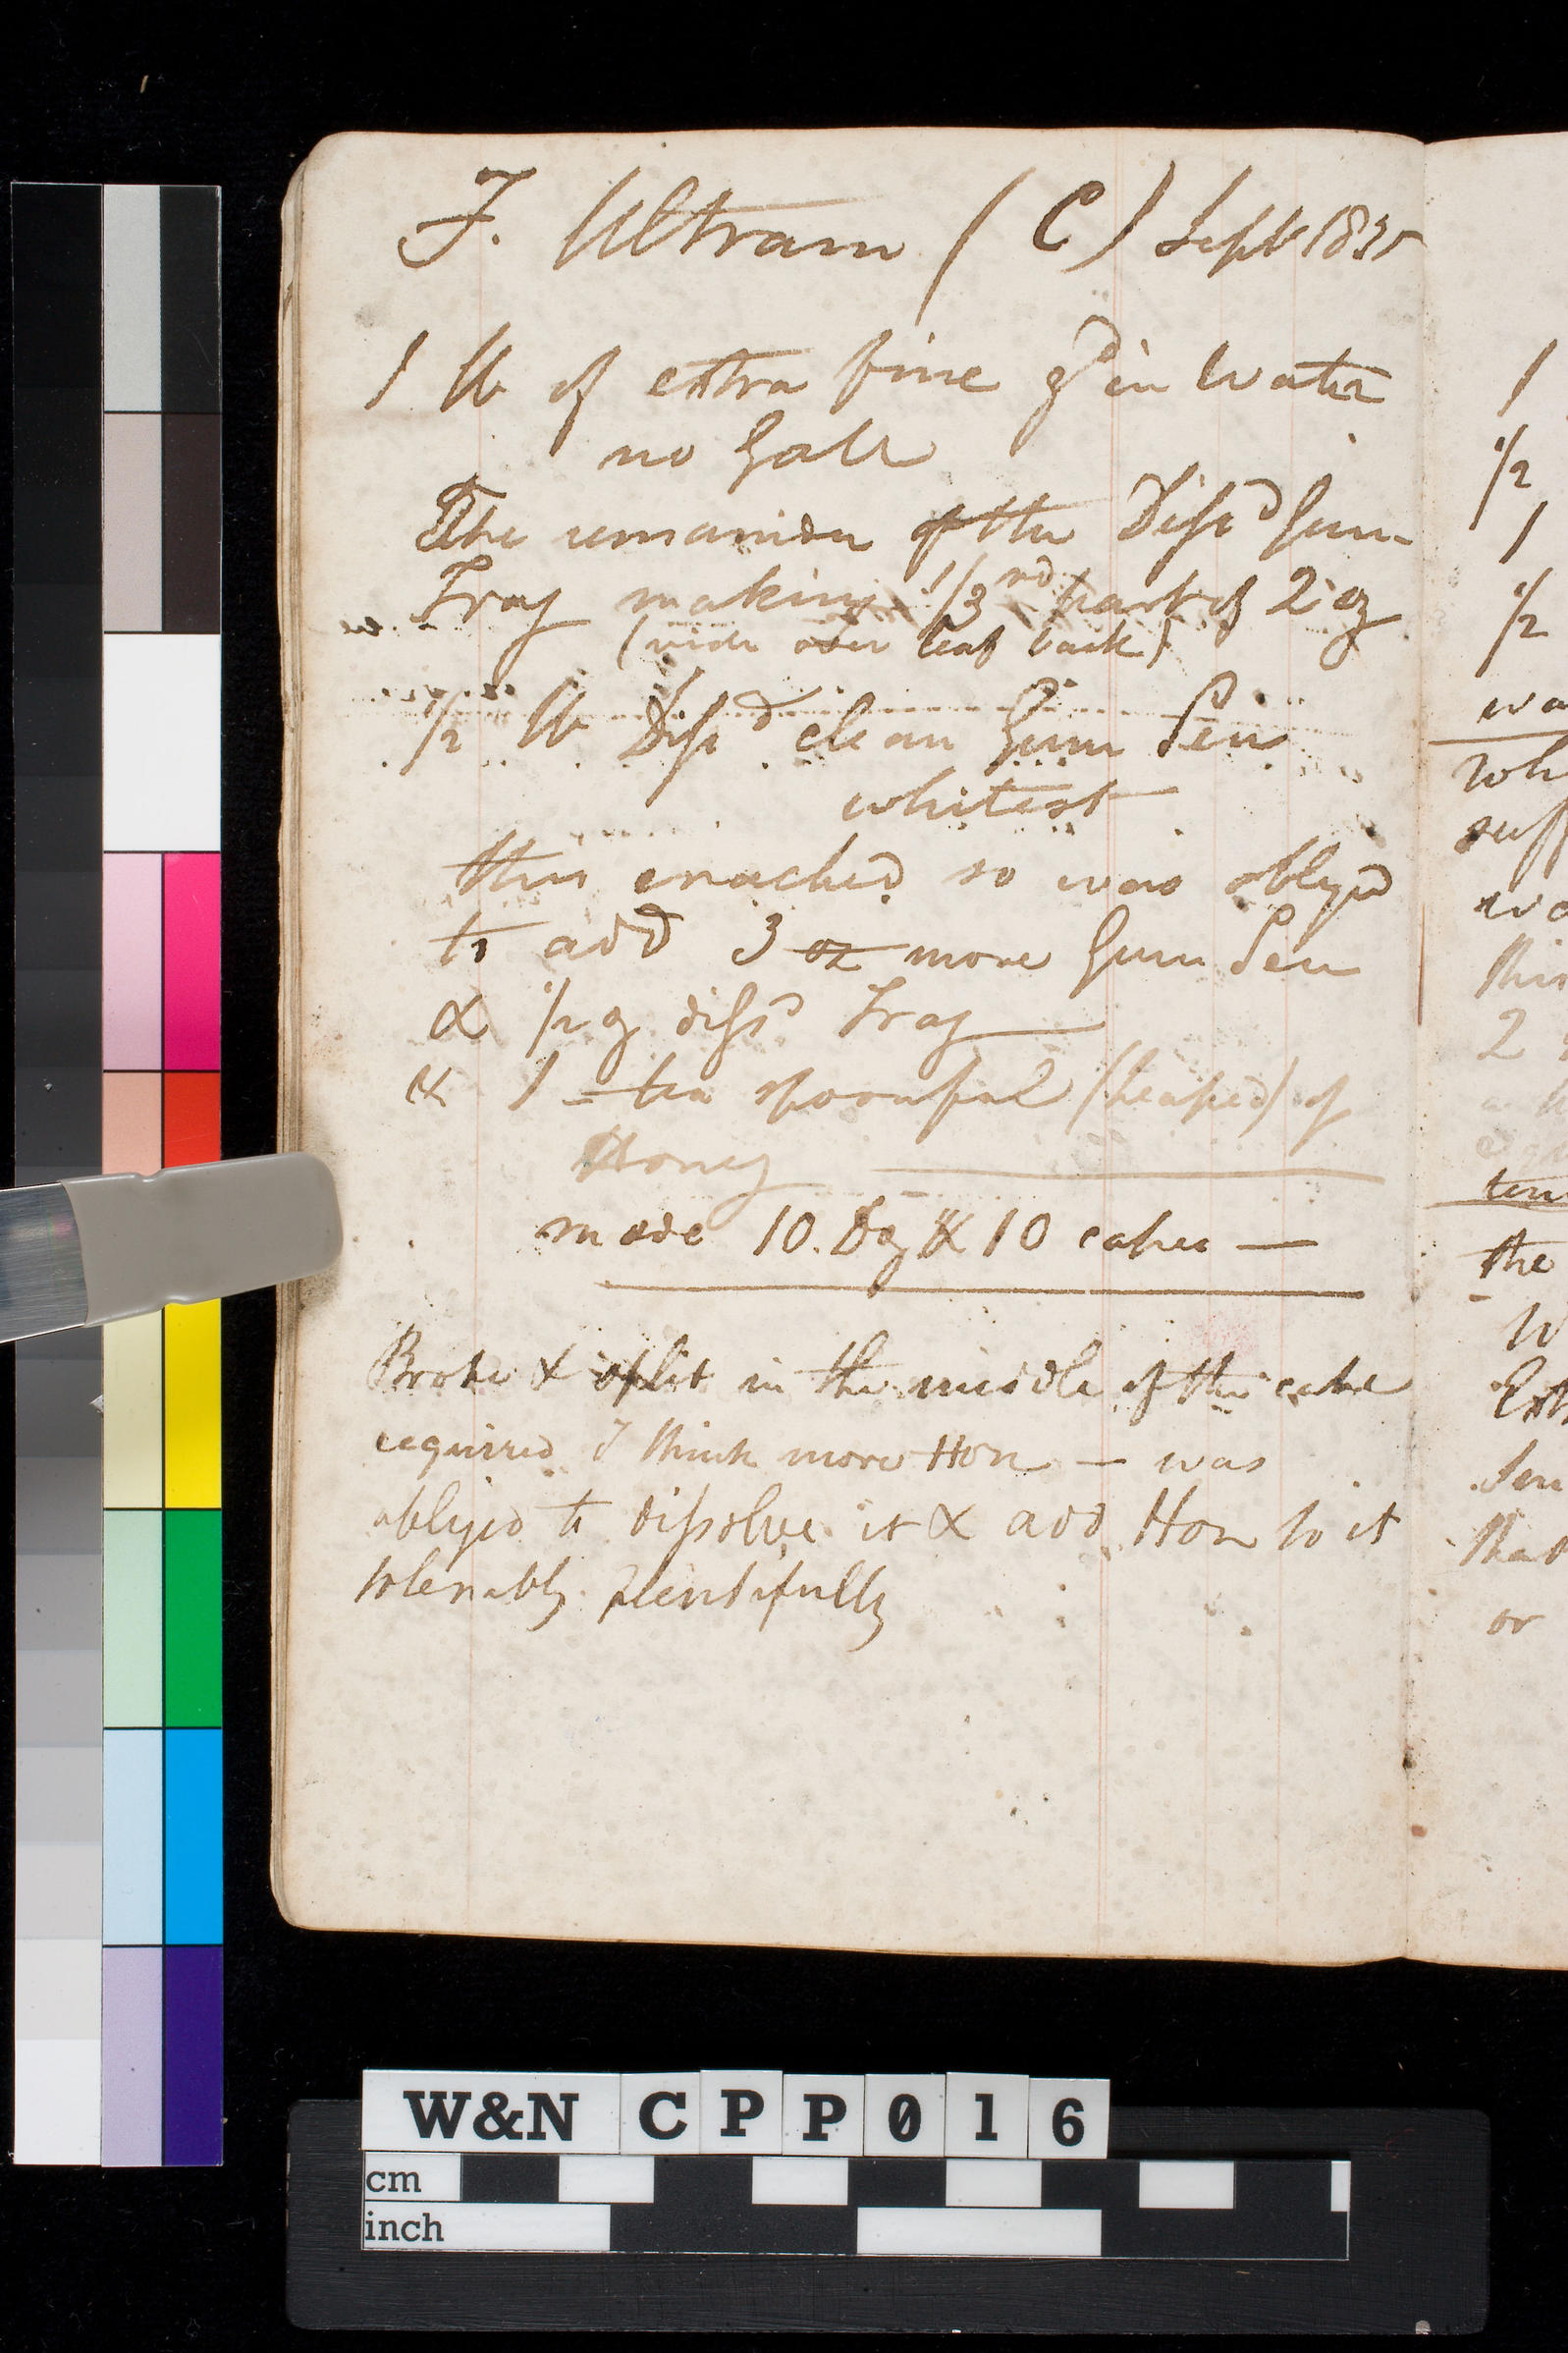 F. Ultram ( C ) Sept 1835
1 lb of extra fine gd in Water
no Gall
The remainder of the Dissd Gum
Trag making 1/3rd part of 2 oz
(vide over leaf back)
1/2 lb Dissd clean Gum Sen
whitest
this cracked so was obliged
to add 3 oz more Gum Sen
& 1/2 oz dissd Trag
& 1 tea spoonful (heaped) of
Honey
made 10. Doz & 10 cakes —
Broke & split in the middle of the cake
required I think more Hon — was
obliged to dissolve it & add Hon to it
tolerably plentifully
1
1/2
1
1/2
wa
Wh
suff
wo
this
2
ten
the
W
Ext
Sen
that
or
W&N CPP016
cm
inch